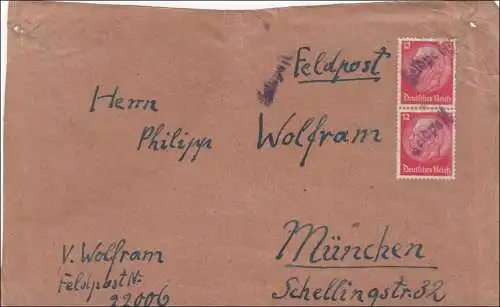 Feldpost
Herrn
Philipp Wolfram
München
Schellingstr. 32
V. Wolfram
Feldpost Nr.
22006
12
Deutsches Reich
12
Deutsches Reich